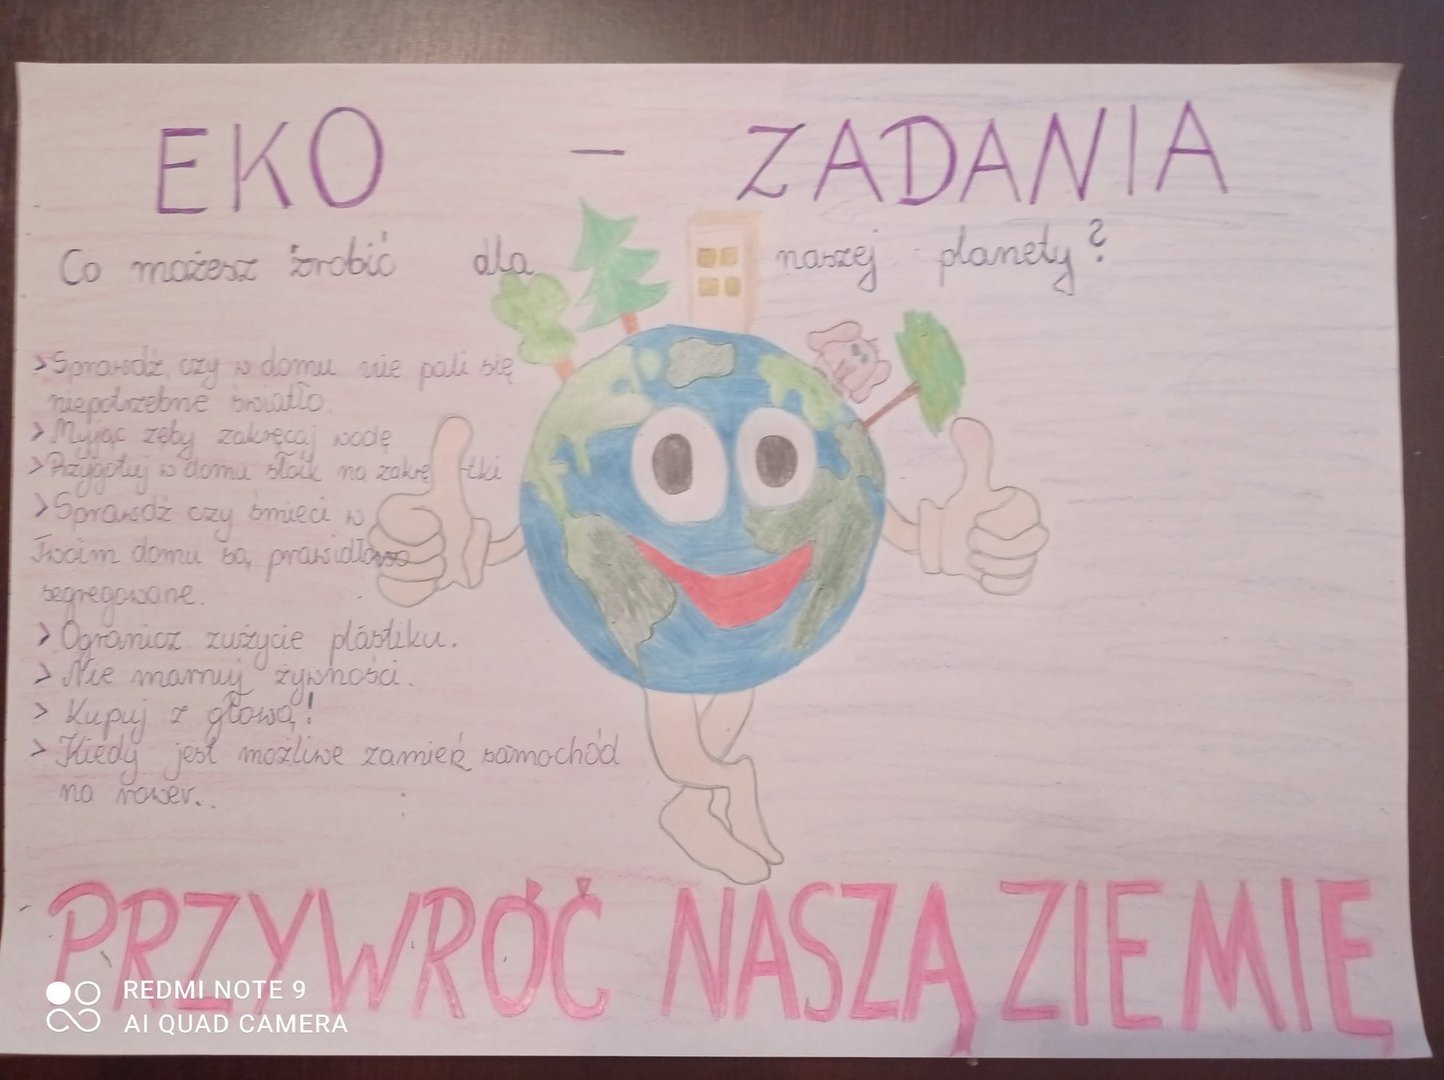 EKO - ZADANIA
Co możesz zrobić dla naszej planety?
> Sprawdź, czy w domu nie pali się
niepotrzebne światło.
> Myjąc zęby zakręcaj wodę
> Przygotuj w domu słoik na zakrętki
> Sprawdź czy śmieci w
Twoim domu są prawidłowo
segregowane.
> Ogranicz zużycie plastiku.
> Nie marnuj żywności.
> Kupuj z głową!
> Kiedy jest możliwe zamień samochód
na rower..
PRZYWRÓĆ NASZĄ ZIEMIĘ
REDMI NOTE 9
AI QUAD CAMERA